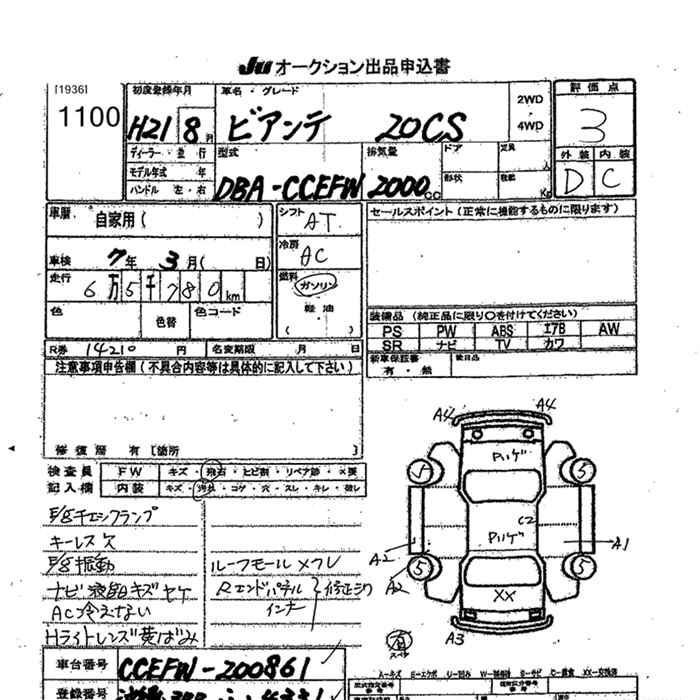 Ju オークション出品申込書
[1936]
1100
初度登録年月
H21 8 月
車名・グレード
ビアンテ 20CS
2WD
・
4WD
評価点
3
外装 内装
D C
ディーラー・並行
モデル年式 年
ハンドル 左・右
型式
DBA-CCEFW
排気量
2000 cc
ドア
形状
定員
人
積載
Kg
車歴 自家用( )
車検 7年 3月( 日)
走行 6万5千780km
色
色替
色コード
シフト AT
冷房 AC
燃料 ガソリン
軽油
( )
セールスポイント(正常に機能するものに限ります)
装備品(純正品に限り○を付けてください)
PS PW ABS エアB AW
SR ナビ TV カワ
新車保証書
有・無
後日品
R券 14210 円 名変期限 月 日
注意事項申告欄(不具合内容等は具体的に記入して下さい)
修復歴 有 [箇所
検査員 FW キズ・飛石・ヒビ割・リペア跡・X要
記入欄 内装 キズ・汚れ・コゲ・穴・スレ・キレ・荷レ
キーレス欠
ナビ液晶キズヤケ
AC冷えない
Hライトレンズ黄ばみ
ルーフモールメクレ
Rエンドパネル
インナー
修正ジワ
A4 A4
ハゲ
5 5
C2
ハゲ
A2 A1
A2
5 5
XX
A3
車台番号 CCEFW-200861
登録番号
A-キズ E-エクボ U-凹み W-補修跡 S-サビ C-腐食 XX-交換済